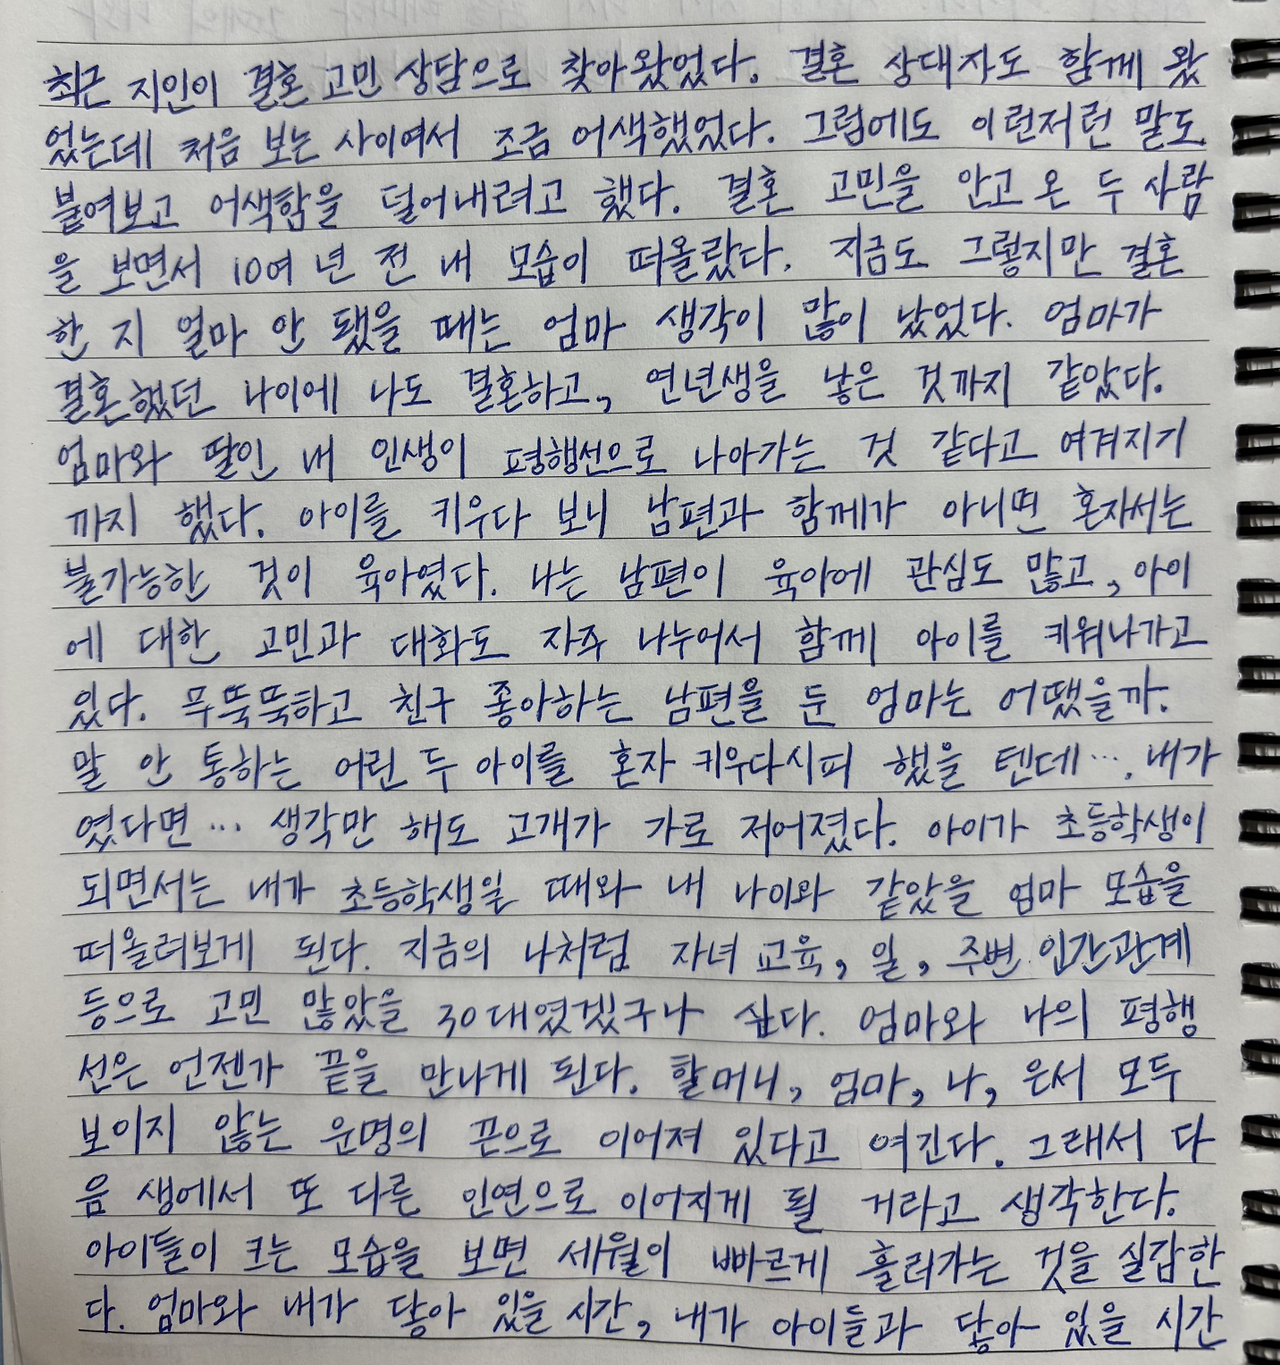 최근 지인이 결혼 고민 상담으로 찾아왔었다. 결혼 상대자도 함께 왔
었는데 처음 보는 사이여서 조금 어색했었다. 그럼에도 이런저런 말도
붙여보고 어색함을 덜어내려고 했다. 결혼 고민을 안고 온 두 사람
을 보면서 10여 년 전 내 모습이 떠올랐다. 지금도 그렇지만 결혼
한 지 얼마 안 됐을 때는 엄마 생각이 많이 났었다. 엄마가
결혼했던 나이에 나도 결혼하고, 연년생을 낳은 것까지 같았다.
엄마와 딸인 내 인생이 평행선으로 나아가는 것 같다고 여겨지기
까지 했다. 아이를 키우다 보니 남편과 함께가 아니면 혼자서는
불가능한 것이 육아였다. 나는 남편이 육아에 관심도 많고, 아이
에 대한 고민과 대화도 자주 나누어서 함께 아이를 키워나가고
있다. 무뚝뚝하고 친구 좋아하는 남편을 둔 엄마는 어땠을까.
말 안 통하는 어린 두 아이를 혼자 키우다시피 했을 텐데…. 내가
였다면… 생각만 해도 고개가 가로 저어졌다. 아이가 초등학생이
되면서는 내가 초등학생일 때와 내 나이와 같았을 엄마 모습을
떠올려보게 된다. 지금의 나처럼 자녀 교육, 일, 주변 인간관계
등으로 고민 많았을 30대였겠구나 싶다. 엄마와 나의 평행
선은 언젠가 끝을 만나게 된다. 할머니, 엄마, 나, 은서 모두
보이지 않는 운명의 끈으로 이어져 있다고 여긴다. 그래서 다
음 생에서 또 다른 인연으로 이어지게 될 거라고 생각한다.
아이들이 크는 모습을 보면 세월이 빠르게 흘러가는 것을 실감한
다. 엄마와 내가 닿아 있을 시간, 내가 아이들과 닿아 있을 시간